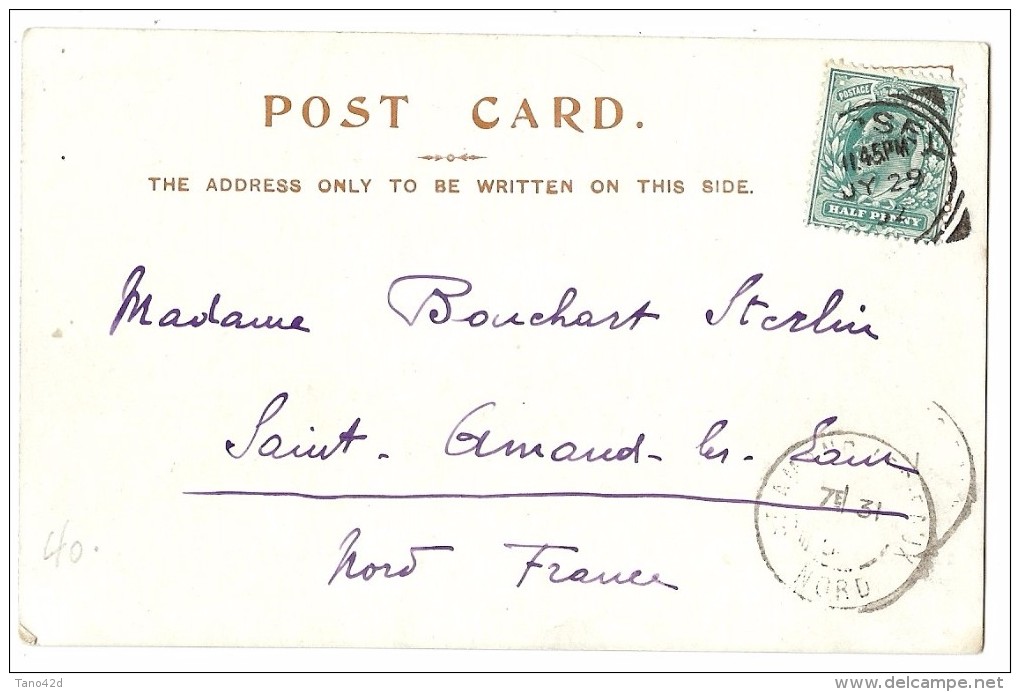 POST CARD.
THE ADDRESS ONLY TO BE WRITTEN ON THIS SIDE.
POSTAGE
HALF PENNY
11.45PM
JY 29
Madame Bouchart Sterlin
Saint-Amand-les-Eaux
Nord France
7E 31
NORD
40.
Tano42d
delcampe.net